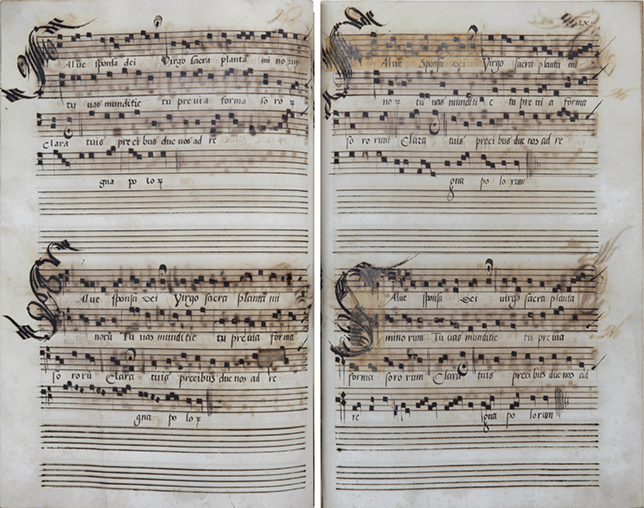 Salue sponsa dei Virgo sacra planta mi no ꝝ
tu uas munditie tu preuia forma so ro ꝝ
Clara tuis precibus duc nos ad re
gna po lo ꝝ
Salue sponsa Dei Virgo sacra planta mi
norū Tu uas munditie tu preuia forma
so rorū Clara tuis precibus duc nos ad re
gna po lo ꝝ
LX
Salue Sponsa Dei Virgo sacra planta mi
no ꝝ tu uas munditi e tu preui a forma
so ro rum Clara tuis precibus duc nos ad re
gna po lo rum
Salue sponsa Dei virgo sacra planta
mino rum Tu uas munditie tu pre uia
forma soro rum Clara tuis precibus duc nos ad
re gna po lo rum